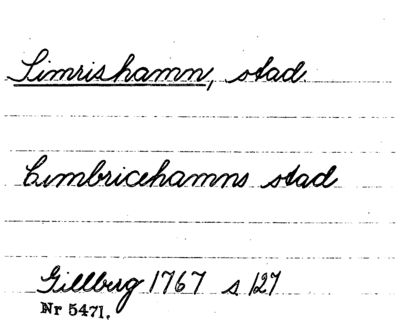 Simrishamn, stad.
Cimbricehamns stad
Gillberg 1767 s 127
Nr 5471.